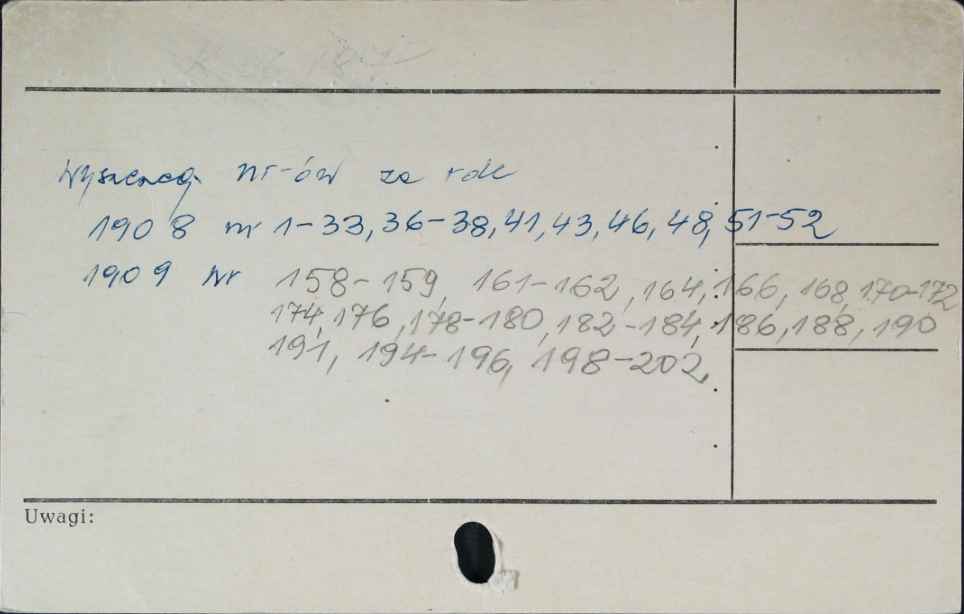 nr-ów za rok
1908 nr 1-33, 36-38, 41, 43, 46, 48, 51-52
1909 nr 158-159, 161-162, 164, 166, 168, 170-172
174, 176, 178-180, 182-184, 186, 188, 190
191, 194-196, 198-202,
Uwagi: